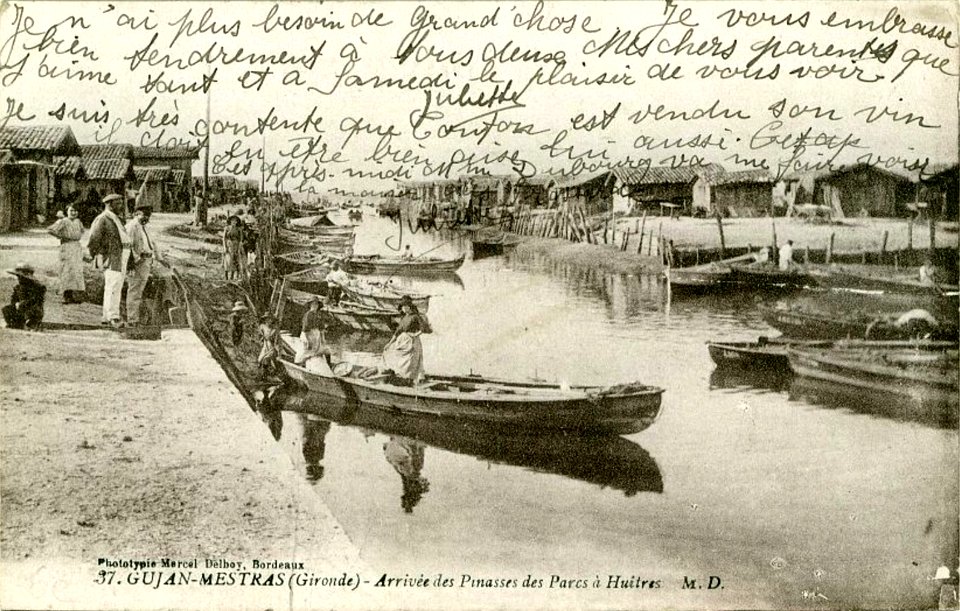 Je n'ai plus besoin de Grand'chose Je vous embrasse
bien tendrement à tous deux chers parents que
J'aime tant et à Samedi le plaisir de vous voir
Juliette
Je suis très contente que Tonton est vendu son vin
il doit en être bien aise lui aussi
des après-midi Dubourg va me faire voir
la
Phototypie Marcel Delboy, Bordeaux
37. GUJAN-MESTRAS (Gironde) - Arrivée des Pinasses des Parcs à Huîtres M. D.